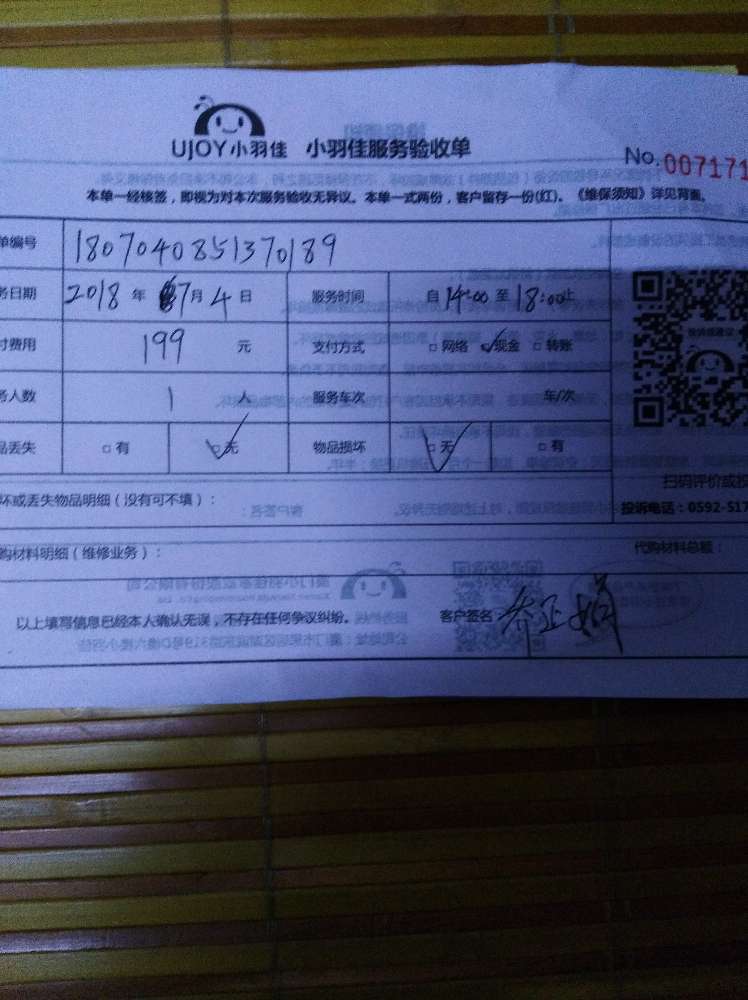 UJOY小羽佳 小羽佳服务验收单
No.007171
本单一经核签，即视为对本次服务验收无异议。本单一式两份，客户留存一份(红)。《维保须知》详见背面。
单编号 1807040851370189
务日期 2018 年 7月 4 日 服务时间 自 14:00 至 18:00止
付费用 199 元 支付方式 □ 网络 ✓现金 □ 转账
务人数 1 人 服务车次 车/次
品丢失 □ 有 □无 物品损坏 □ 无 □ 有
投诉或建议
扫码评价或投
坏或丢失物品明细（没有可不填）： 投诉电话：0592-517
购材料明细（维修业务）： 代购材料总额：
以上填写信息已经本人确认无误，不存在任何争议纠纷。 客户签名